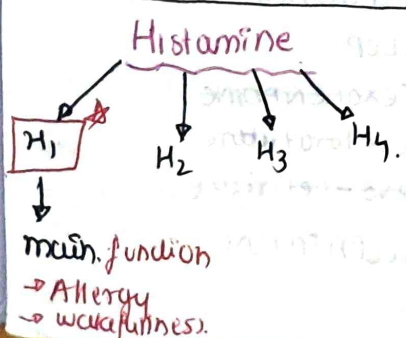 Histamine
H₁
H₂
H₃
H₄.
main. function
→ Allergy
→ wakefulness.